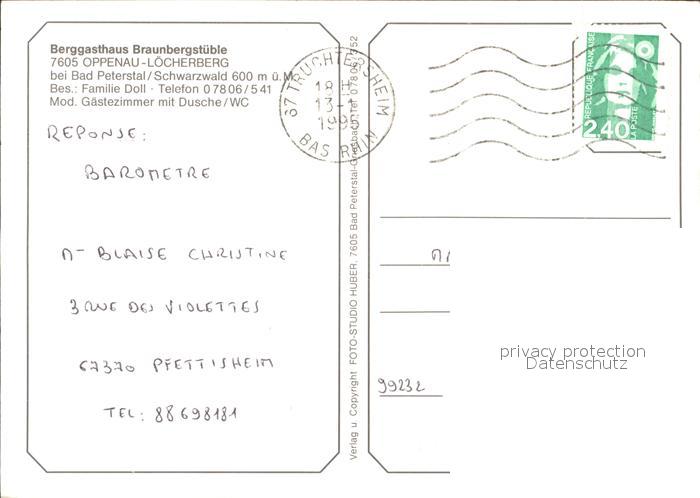 Berggasthaus Braunbergstüble
7605 OPPENAU-LÖCHERBERG
bei Bad Peterstal/Schwarzwald 600 m ü.M.
Bes.: Familie Doll · Telefon 07806/541
Mod. Gästezimmer mit Dusche/WC
REPONSE:
BAROMETRE
BLAISE CHRISTINE
3 RUE DES VIOLETTES
67370 PFETTISHEIM
TEL: 88698181
67 TRUCHTERSHEIM
18 H
13-1
1995
BAS RHIN
Verlag u. Copyright FOTO-STUDIO HUBER, 7605 Bad Peterstal-Griesbach, Tel. 07806/
REPUBLIQUE FRANÇAISE
2,40
LA POSTE
99232
privacy protection
Datenschutz